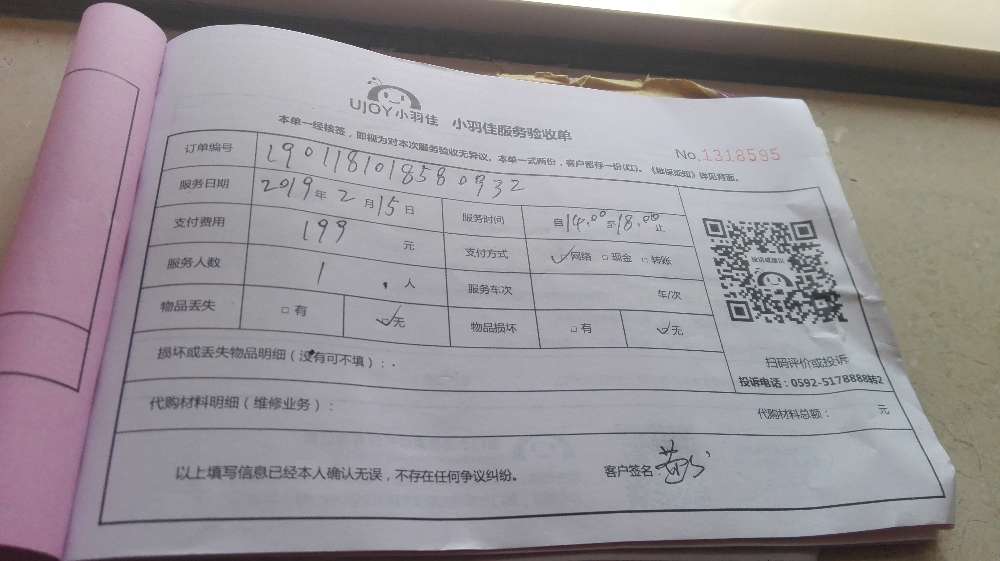 UJOY小羽佳 小羽佳服务验收单
本单一经核签，即视为对本次服务验收无异议。本单一式两份，客户暂存一份(红)。《投保须知》详见背面。
No.1318595
订单编号 1901181018580932
服务日期 2019年2月15日 服务时间 自14:00至18:00止
支付费用 199 元 支付方式 网络 现金 转账
服务人数 1 人 服务车次 车/次
物品丢失 有 无 物品损坏 有 无
损坏或丢失物品明细（没有可不填）：
扫码评价或投诉
投诉电话：0592-5178888转2
代购材料明细（维修业务）： 代购材料总额： 元
以上填写信息已经本人确认无误，不存在任何争议纠纷。 客户签名：